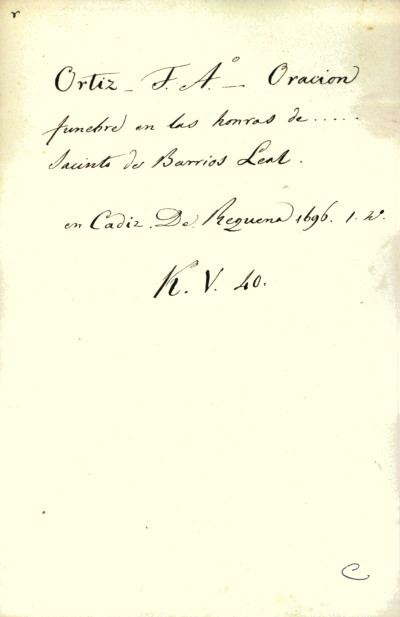 r
Ortiz _ F. A.º _ Oracion
funebre en las honras de .....
Jacinto de Barrios Leal.
en Cadiz. De Requena 1696. 1. v.
K. V. 40.
C